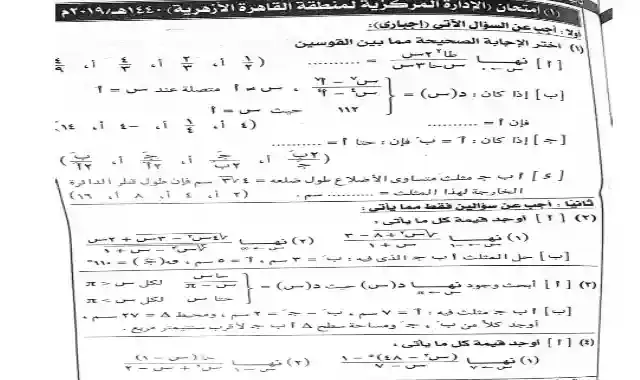 (١) امتحان (الإدارة المركزية لمنطقة القاهرة الأزهرية) ١٤٤٠هـ/٢٠١٩م
أولا: أجب عن السؤال الآتي (إجباري):
(١) اختر الإجابة الصحيحة مما بين القوسين
[أ] نهــا س←٠ طا٢ ٢س / س حا ٣س = ......... (١/٢ أ، ٣/٢ أ، ٤/٣ أ، ٤/٩
[ب] إذا كان: د(س) = ، س ≠ أ متصلة عند س = أ
١١٢ حيث س = أ
فإن أ = .................... (٤ أ، ١/٤ أ، -٤ أ، ١٤)
[جـ] إذا كان: أَ = بَ فإن: حتا أ = ..........
[د] أ ب جـ مثلث متساوى الأضلاع طول ضلعه = ٤√٣ سم فإن طول قطر الدائرة
الخارجة لهذا المثلث = .......... سم. (٢ أ، ٤ أ، ٨ أ، ١٦)
ثانيا: أجب عن سؤالين فقط مما يأتى:
(٢) [أ] أوجد قيمة كل ما يأتى:
(١) نهــا س←-١ √س٢+٨ - ٣ / س + ١ (٢) نهــا
[ب] حل المثلث أ ب جـ الذى فيه: بَ = ٣ سم، أَ = ٥ سم،
(٣) [أ] ابحث وجود نهــا س←π د(س) حيث د(س) = حا س / س - π لكل س < π
حتا س لكل س > π
[ب] أ ب جـ مثلث فيه: أَ = ٧ سم، بَ - جـَ = ٢ سم، ومحيط Δ = ٢٧ سم،
أوجد كلاً من بَ، جـَ ومساحة سطح Δ أ ب جـ لأقرب سنتيمتر مربع.
(٤) [أ] أوجد قيمة كل ما يأتى:
(١) نهــا س←٧ (س٢ - ٤٨)٥ - ١ / س - ٧ (٢) نهــا س←١ حا (س - ١) / س٢ + س - ٢